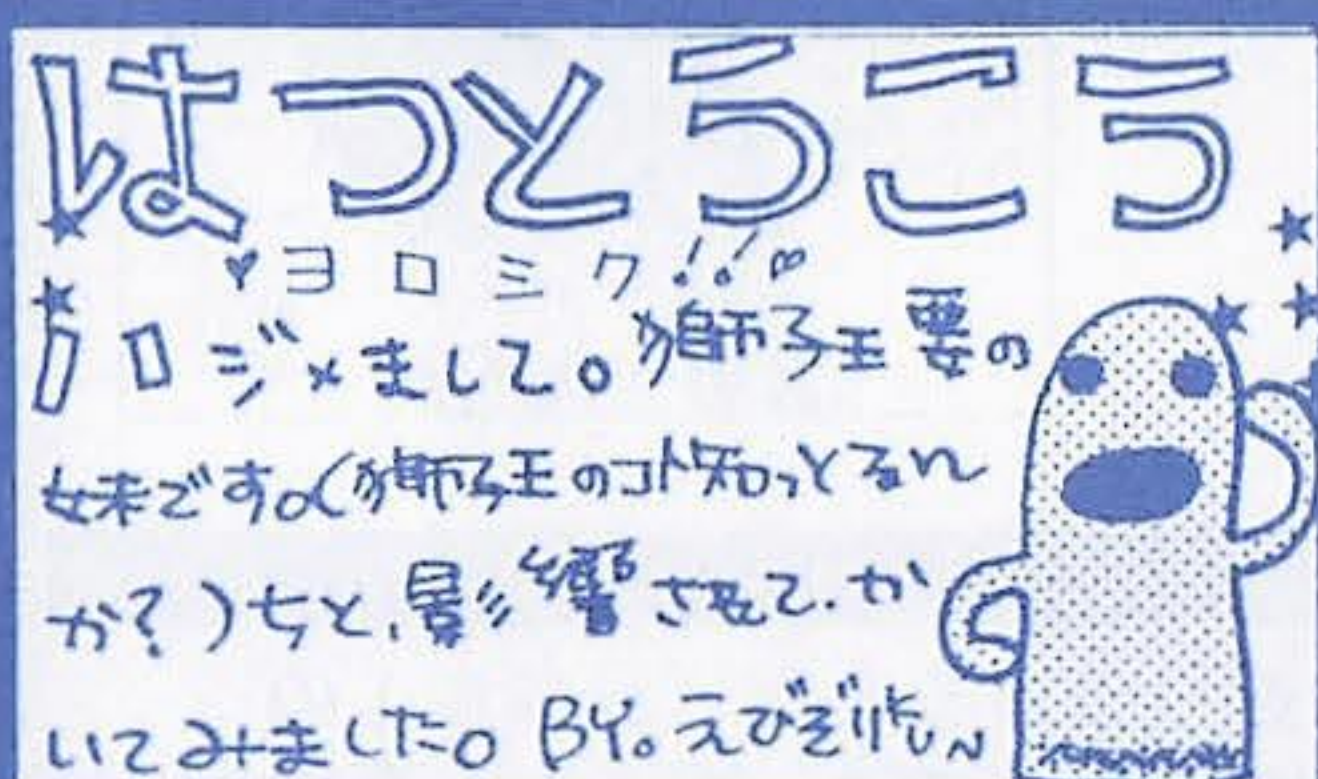 はつとうこう
♥ヨロシク!!♥
ハロジメまして。獅子王要の
妹です。(獅子王のコト知っとるん
か?)ちと、影響されて、か
いてみました。BY。えびぞり